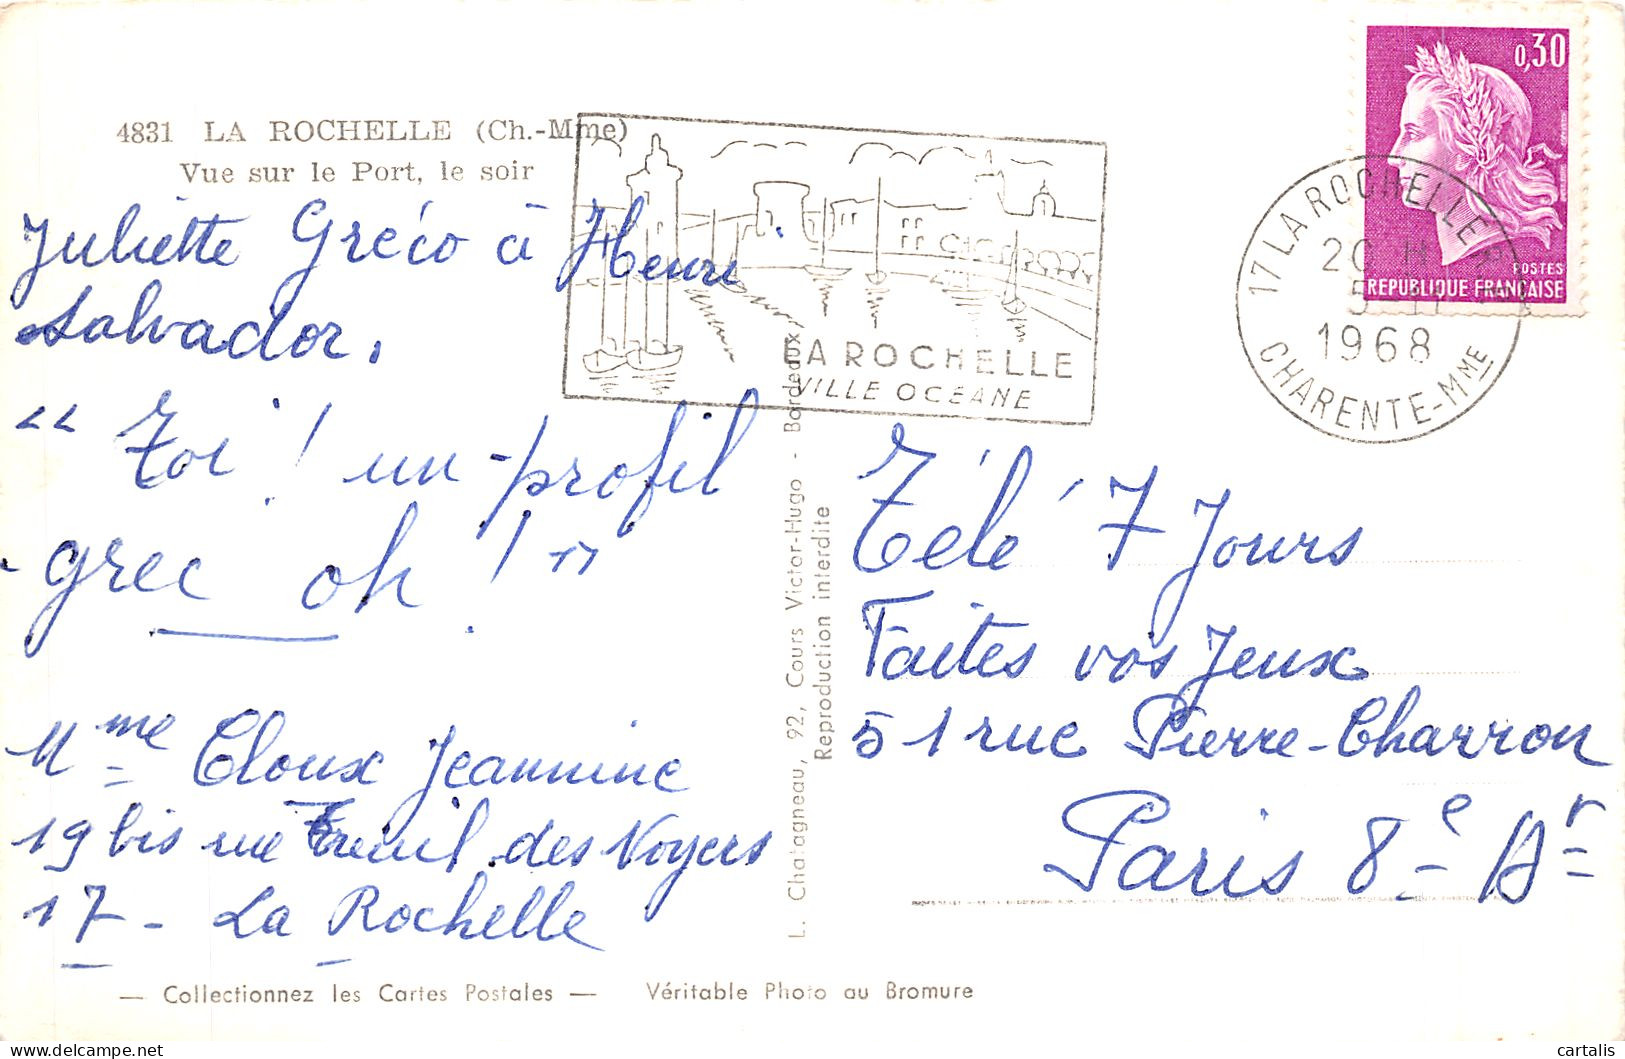 4831 LA ROCHELLE (Ch.-Mme)
Vue sur le Port, le soir
Juliette Gréco à Henri
Salvador.
" Toi ! un profil
grec oh ! "
Mme Cloux Jeannine
19 bis rue Treuil des Noyers
17 - La Rochelle
— Collectionnez les Cartes Postales — Véritable Photo au Bromure
L. Chatagneau, 92, Cours Victor-Hugo - Bordeaux
Reproduction interdite
LA ROCHELLE
VILLE OCEANE
17 LA ROCHELLE
1968
CHARENTE-MME
0,30
POSTES
REPUBLIQUE FRANÇAISE
Télé 7 Jours
Faites vos Jeux
51 rue Pierre-Charron
Paris 8e Ar
cartalis